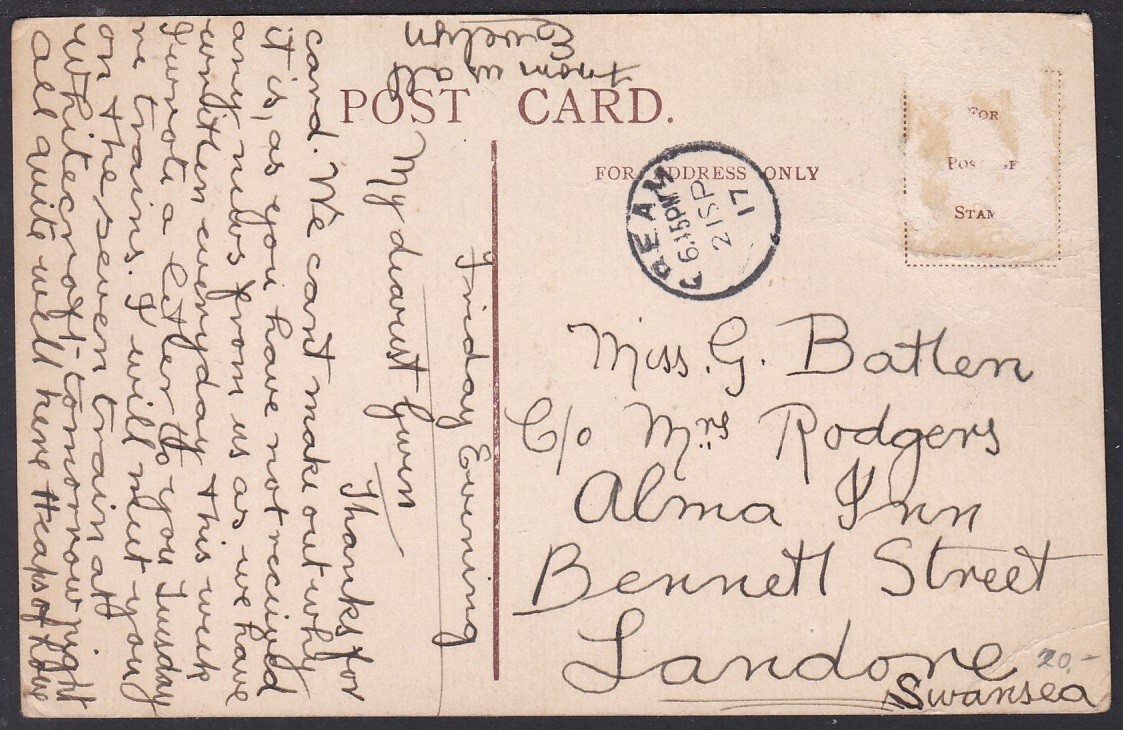 POST CARD.
FOR ADDRESS ONLY
FOR
POSTAGE
STAM
CREAM
6.45PM
21SP
17
Miss. G. Batten
C/o Mrs Rodgers
Alma Inn
Bennett Street
Landore
Swansea
20,-
Friday Evening
My dearest Gwen
Thanks for
card. We cant make out why
it is, as you have not received
any news from us as we have
written everyday this week
I wrote a letter to you Tuesday
re trains. I will meet you
on the seven train at
Whitecroft tomorrow night
All quite well here Heaps of Love
from us all
Evelyn